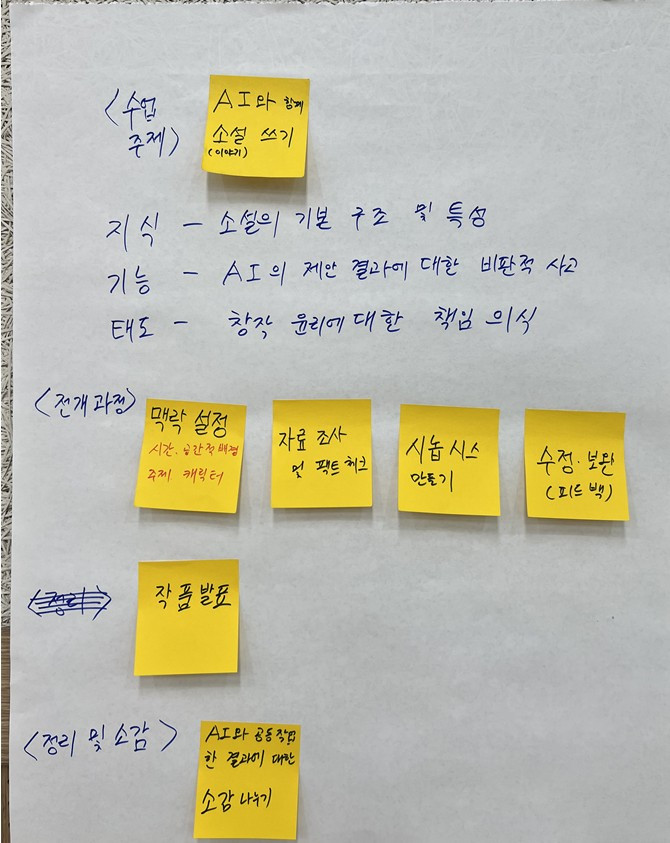 <수업
주제>
AI와 함께
소설 쓰기
(이야기)
지식 - 소설의 기본 구조 및 특성
기능 - AI의 제안 결과에 대한 비판적 사고
태도 - 창작 윤리에 대한 책임 의식
<전개 과정>
맥락 설정
시간·공간적 배경
주제 캐릭터
자료 조사
및 팩트 체크
시놉시스
만들기
수정·보완
(피드백)
<정리>
작품 발표
<정리 및 소감>
AI와 공동작업
한 결과에 대한
소감 나누기